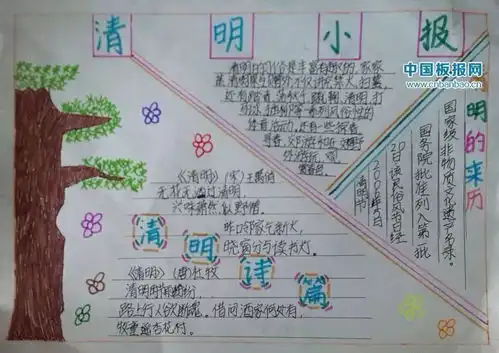 清明小报
中国板报网
www.cnbanbao.cn
清明节的习俗是丰富有趣的,除
了讲究禁火、扫墓,
还有踏青、荡秋千、蹴鞠、打
马球、插柳等一系列风俗体
育活动。
明的来历
清明节
2006年5月
20日,该民俗节日经
国务院批准列入第一批
国家级非物质文化遗产名录。
《清明》(宋)王禹偁
无花无酒过清明,
兴味萧然似野僧。
昨日邻家乞新火,
晓窗分与读书灯。
清明诗篇
《清明》(唐)杜牧
清明时节雨纷纷,
路上行人欲断魂。借问酒家何处有,
牧童遥指杏花村。